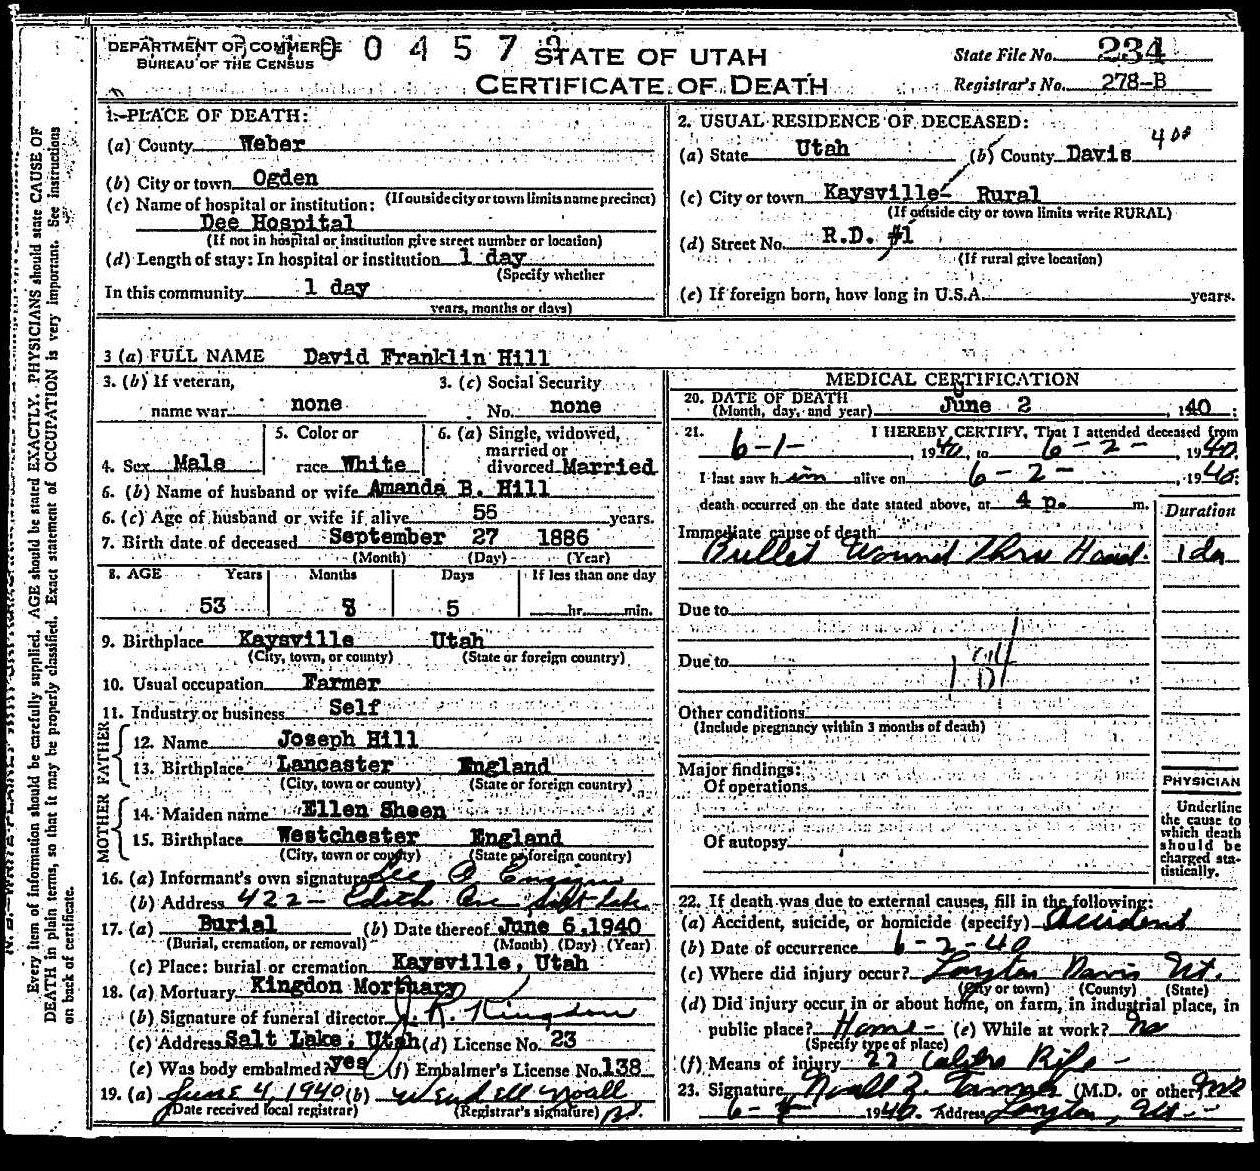 DEPARTMENT OF COMMERCE
BUREAU OF THE CENSUS
STATE OF UTAH
CERTIFICATE OF DEATH
State File No. 234
Registrar's No. 278-B
Every item of information should be carefully supplied. AGE should be stated EXACTLY. PHYSICIANS should state CAUSE OF
DEATH in plain terms, so that it may be properly classified. Exact statement of OCCUPATION is very important. See instructions
on back of certificate.
1. PLACE OF DEATH:
(a) County Weber
(b) City or town Ogden
(If outside city or town limits name precinct)
(c) Name of hospital or institution:
Dee Hospital
(If not in hospital or institution give street number or location)
(d) Length of stay: In hospital or institution 1 day
(Specify whether
In this community 1 day
years, months or days)
2. USUAL RESIDENCE OF DECEASED:
(a) State Utah (b) County Davis
(c) City or town Kaysville- Rural
(If outside city or town limits write RURAL)
(d) Street No. R.D. #1
(If rural give location)
(e) If foreign born, how long in U.S.A. years.
3 (a) FULL NAME David Franklin Hill
3. (b) If veteran, name war none
3. (c) Social Security No. none
4. Sex Male
5. Color or race White
6. (a) Single, widowed, married or divorced Married
6. (b) Name of husband or wife Amanda B. Hill
6. (c) Age of husband or wife if alive 55 years.
7. Birth date of deceased September 27 1886
(Month) (Day) (Year)
8. AGE Years Months Days If less than one day
53 8 5 hr. min.
9. Birthplace Kaysville Utah
(City, town, or county) (State or foreign country)
10. Usual occupation Farmer
11. Industry or business Self
FATHER
12. Name Joseph Hill
13. Birthplace Lancaster England
(City, town or county) (State or foreign country)
MOTHER
14. Maiden name Ellen Sheen
15. Birthplace Westchester England
(City, town or county) (State or foreign country)
16. (a) Informant's own signature Lee A Ensign
(b) Address 422 - Edith Ave Salt lake
17. (a) Burial (b) Date thereof June 6, 1940
(Burial, cremation, or removal) (Month) (Day) (Year)
(c) Place: burial or cremation Kaysville, Utah
18. (a) Mortuary Kingdon Mortuary
(b) Signature of funeral director J. R. Kingdon
(c) Address Salt Lake, Utah (d) License No. 23
(e) Was body embalmed? yes (f) Embalmer's License No. 138
19. (a) June 4, 1940 (b) Wendell Noall
(Date received local registrar) (Registrar's signature)
MEDICAL CERTIFICATION
20. DATE OF DEATH
(Month, day, and year) June 2, 1940;
21. I HEREBY CERTIFY, That I attended deceased from
6-1-, 1940, to 6-2-, 1940.
I last saw him alive on 6-2-, 1940;
death occurred on the date stated above, at 4 p. m.
Duration
Immediate cause of death
Bullet Wound Thru Head. 1 da
Due to
Due to
Other conditions
(Include pregnancy within 3 months of death)
Major findings:
Of operations
Of autopsy
PHYSICIAN
Underline
the cause to
which death
should be
charged sta-
tistically.
22. If death was due to external causes, fill in the following:
(a) Accident, suicide, or homicide (specify) Accident
(b) Date of occurrence 6-2-40
(c) Where did injury occur? Layton Davis Ut.
(City or town) (County) (State)
(d) Did injury occur in or about home, on farm, in industrial place, in
public place? Home- (e) While at work? No
(Specify type of place)
(f) Means of injury 22 Calibre Rifle -
23. Signature Noall Z. Tanner (M.D. or other) MD
1940. Address Layton, Ut.